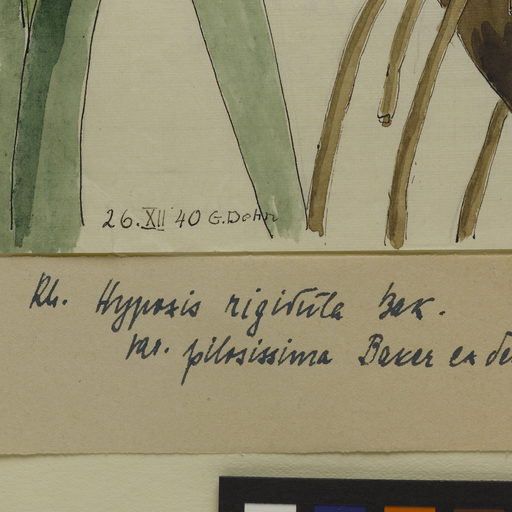 26.XII 40 G. Dohr
Rh. Hypoxis rigidula Bak.
var. pilosissima Baker ex de